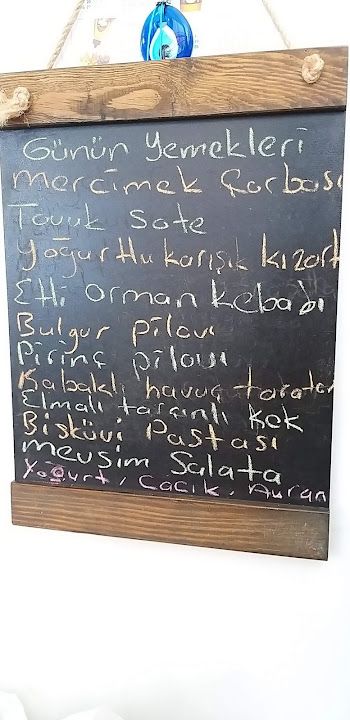 Günün Yemekleri
Mercimek Çorbası
Tavuk Sote
Yoğurtlu karışık kızart
Etli orman kebabı
Bulgur pilavı
Pirinç pilavı
Kabaklı havuç tarator
Elmalı tarçınlı kek
Bisküvi Pastası
mevsim Salata
Yoğurt, Cacık, Ayran